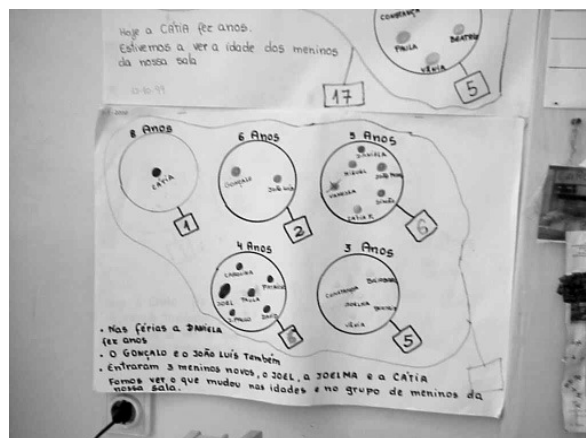 Hoje a CÁTIA fez anos.
Estivemos a ver a idade dos meninos
da nossa sala
CONSTANÇA
BEATRIZ
PAULA
VÂNIA
17
5
8 Anos
CÁTIA
1
6 Anos
GONÇALO
JOÃO LUÍS
2
5 Anos
DANIELA
MIGUEL
JOÃO
VANESSA
CÁTIA R.
6
4 Anos
CAROLINA
PATRÍCIO
JOEL
PAULA
J. PAULO
DAVID
6
3 Anos
CONSTANÇA
JOELMA
BEATRIZ
VÂNIA
5
• Nas férias a DANIELA
fez anos
• O GONÇALO e o JOÃO LUÍS Também
• Entraram 3 meninos novos, o JOEL, a JOELMA e a CÁTIA
Fomos ver o que mudou nas idades e no grupo de meninos da
nossa sala.